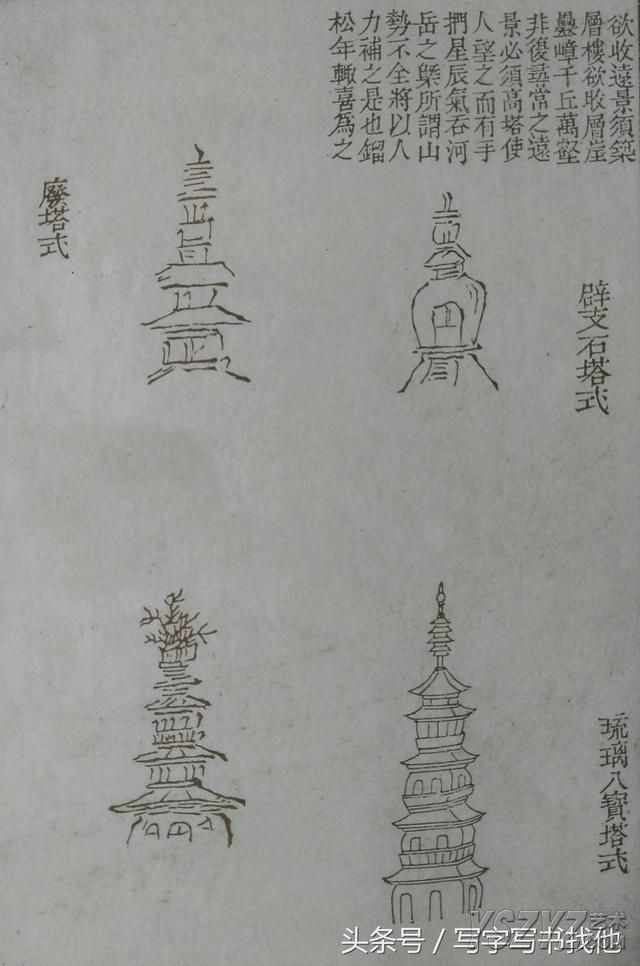 欲收遠景須築
層樓欲收層崖
疊嶂千丘萬壑
非復尋常之遠
景必須高塔使
人望之而有手
捫星辰氣吞河
岳之槩所謂山
勢不全將以人
力補之是也鎦
松年輒喜為之
辟支石塔式
廢塔式
琉璃八寶塔式
头条号／写字写书找他